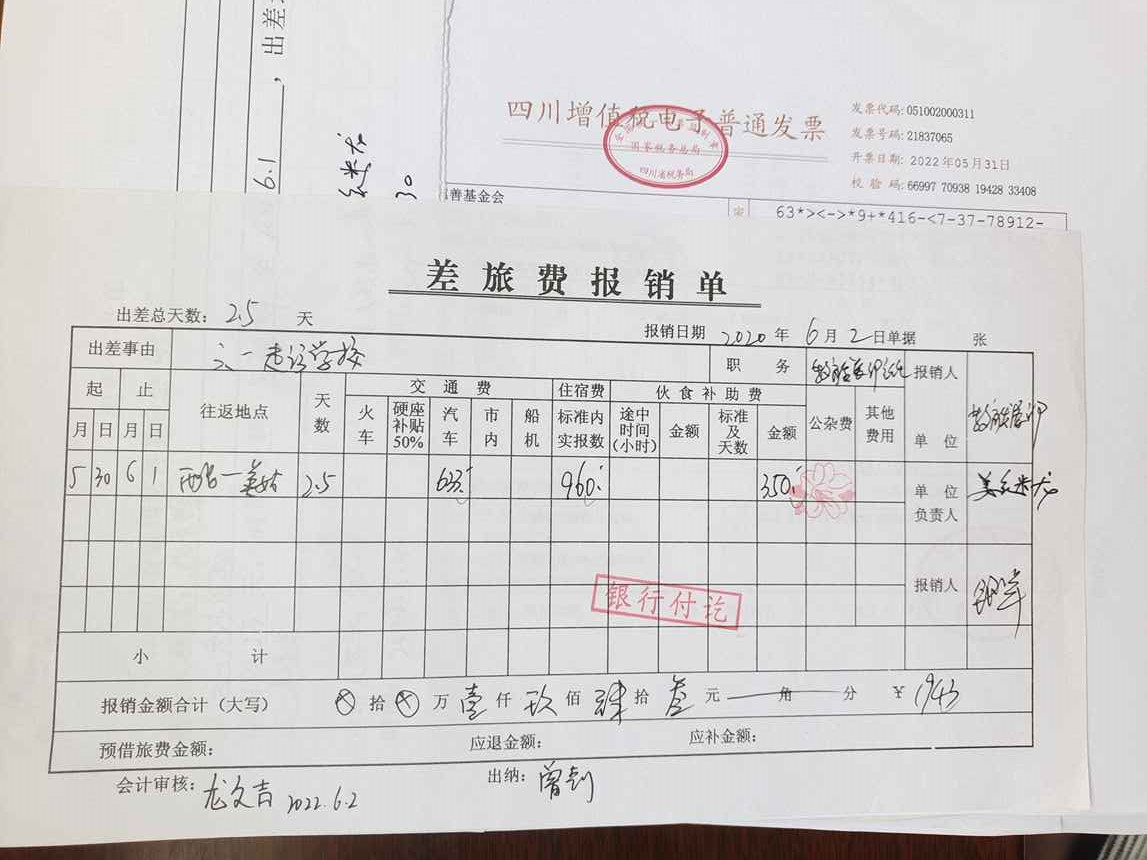 ，出差
6.1
30
四川增值税电子普通发票
国家税务总局
四川省税务局
发票代码: 051002000311
发票号码: 21837065
开票日期: 2022年05月31日
校 验 码: 66997 70938 19428 33408
善基金会
63*><->*9+*416-<7-37-78912-
差旅费报销单
出差总天数: 2.5 天
报销日期 2020 年 6 月 2 日单据 张
出差事由 六一走访学校 职 务 报销人
起 止 往返地点 天数 交通费 住宿费 伙食补助费 公杂费 其他费用 单 位
月 日 月 日 火车 硬座补贴50% 汽车 市内 船机 标准内实报数 途中时间(小时) 金额 标准及天数 金额
5 30 6 1 西昌—美姑 2.5 633 960 350 单 位
负责人
报销人
银行付讫
小 计
报销金额合计（大写） ⊗ 拾 ⊗ 万 壹 仟 玖 佰 肆 拾 叁 元 角 分 ¥ 1943
预借旅费金额: 应退金额: 应补金额:
会计审核: 龙文吉 2022.6.2 出纳: